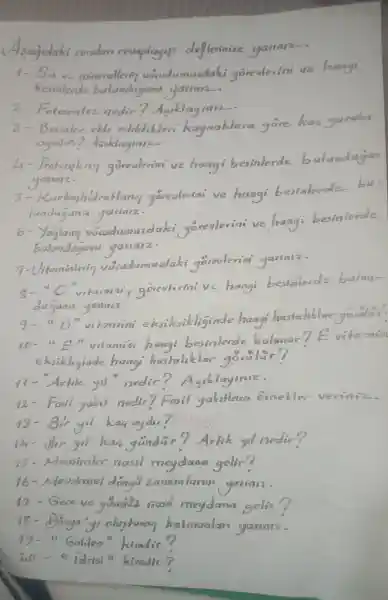 Aşağıdaki soruları cevaplayıp defterinize yazınız.
1- Su ve minerallerin vücudumuzdaki görevlerini ve hangi
besinlerde bulunduğunu yazınız.
2- Fotosentez nedir? Açıklayınız.
3- Besinler elde edildikleri kaynaklara göre kaç gruba
ayrılır? Açıklayınız.
4- Proteinlerin görevlerini ve hangi besinlerde bulunduğunu
yazınız.
5- Karbonhidratların görevlerini ve hangi besinlerde bu-
lunduğunu yazınız.
6- Yağların vücudumuzdaki görevlerini ve hangi besinlerde
bulunduğunu yazınız.
7- Vitaminlerin vücudumuzdaki görevlerini yazınız.
8- "C" vitamininin görevlerini ve hangi besinlerde bulun-
duğunu yazınız.
9- "D" vitamini eksikliğinde hangi hastalıklar görülür?
10- "E" vitamini hangi besinlerde bulunur? E vitamini
eksikliğinde hangi hastalıklar görülür?
11- "Artık yıl" nedir? Açıklayınız.
12- Fosil yakıt nedir? Fosil yakıtlara örnekler veriniz.
13- Bir yıl kaç aydır?
14- Bir yıl kaç gündür? Artık yıl nedir?
15- Mevsimler nasıl meydana gelir?
16- Mevsimsel döngü zamanlarını yazınız.
17- Gece ve gündüz nasıl meydana gelir?
18- Dünya'yı oluşturan katmanları yazınız.
19- "Galileo" kimdir?
20- "İdrisi" kimdir?